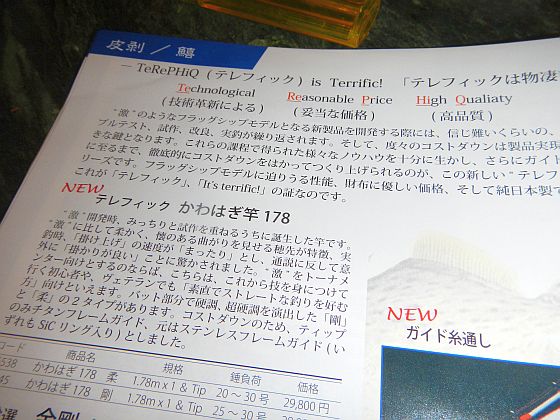 皮剥 / 鱚
— TeRePHiQ ( テレフィック ) is Terrific! 「テレフィックは物凄
Technological Reasonable Price High Qualiaty
( 技術革新による ) ( 妥当な価格 ) ( 高品質 )
“激”のようなフラッグシップモデルとなる新製品を開発する際には、信じ難いくらいの、
プルテスト、試作、改良、実釣が繰り返されます。そして、度々のコストダウンは製品実現
きな鍵となります。これらの課程で得られた様々なノウハウを十分に生かし、さらにガイド
に至るまで、徹底的にコストダウンをはかってつくり上げられるのが、この新しい“テレフィ
リーズです。フラッグシップモデルに迫りうる性能、財布に優しい価格、そして純日本製で
これが「テレフィック」、「It's terrific!」の証なのです。
NEW
テレフィック かわはぎ竿 178
“激”開発時、みっちりと試作を重ねるうちに誕生した竿です。
“激”に比して柔かく、懐のある曲がりを見せる穂先が特徴、実
釣時、「掛け上げ」の速度が「まったり」とし、通説に反して意
外に「掛かりが良い」ことに驚かされました。“激”をトーナメ
ンター向けとするのならば、こちらは、これから技を身につけて
行く初心者や、ヴェテランでも「素直でストレートな釣りを好む
方」向けといえます。バット部分で硬調、超硬調を演出した「剛」
と「柔」の2タイプがあります。コストダウンのため、ティップ
のみチタンフレームガイド、元はステンレスフレームガイド(い
ずれも SiC リング入り)としました。
NEW
ガイド糸通し
コード 商品名 規格 錘負荷 価格
538 かわはぎ 178 柔 1.78m x 1 & Tip 20 〜 30 号 29,800 円
45 かわはぎ 178 剛 1.78m x 1 & Tip 25 〜 30 号